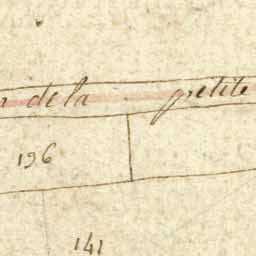 de la petite
196
141